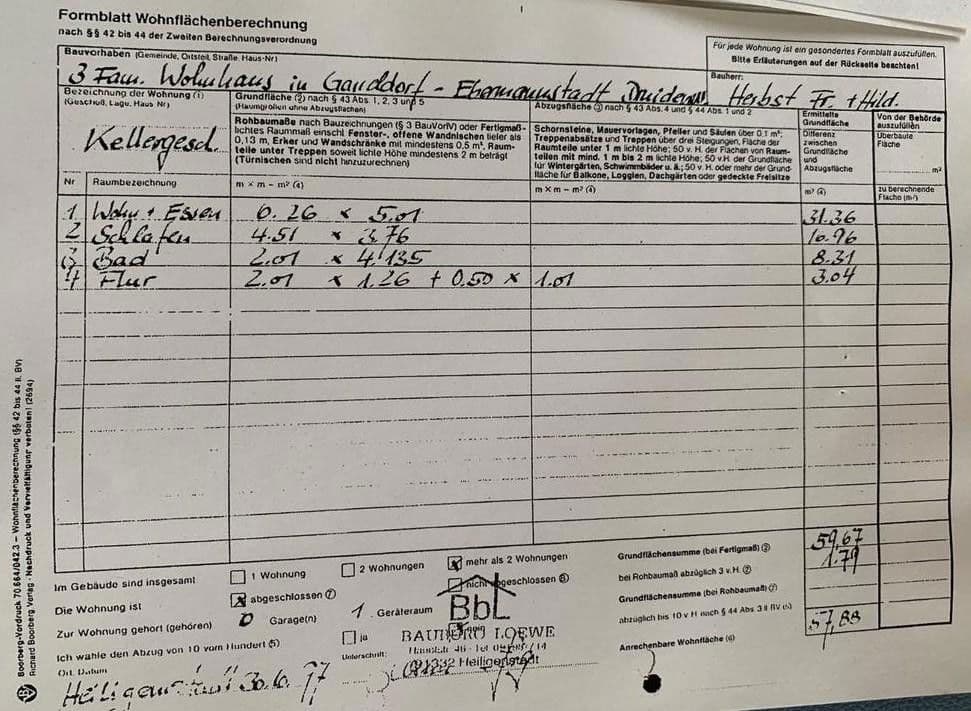 Formblatt Wohnflächenberechnung
nach §§ 42 bis 44 der Zweiten Berechnungsverordnung
Für jede Wohnung ist ein gesondertes Formblatt auszufüllen.
Bitte Erläuterungen auf der Rückseite beachten!
Bauvorhaben (Gemeinde, Ortsteil, Straße, Haus-Nr)
Bauherr:
3 Fam. Wohnhaus in Gauddorf - Ebermannstadt Herbst Fr. + Hild.
Bezeichnung der Wohnung (1)
(Geschoß, Lage, Haus Nr)
Kellergesch.
Grundfläche (2) nach § 43 Abs. 1, 2, 3 und 5
(Raumgrößen ohne Abzugsflächen)
Rohbaumaße nach Bauzeichnungen (§ 3 BauVorlV) oder Fertigmaß-
lichtes Raummaß einschl Fenster-, offene Wandnischen tiefer als
0,13 m, Erker und Wandschränke mit mindestens 0,5 m², Raum-
teile unter Treppen soweit lichte Höhe mindestens 2 m beträgt
(Türnischen sind nicht hinzurechnen)
Abzugsfläche (3) nach § 43 Abs. 4 und § 44 Abs. 1 und 2
Schornsteine, Mauervorlagen, Pfeiler und Säulen über 0,1 m²;
Treppenabsätze und Treppen über drei Steigungen, Fläche der
Raumteile unter 1 m lichte Höhe; 50 v. H. der Flächen von Raum-
teilen mit mind. 1 m bis 2 m lichte Höhe; 50 v.H. der Grundfläche
für Wintergärten, Schwimmbäder u. ä.; 50 v.H. oder mehr der Grund-
fläche für Balkone, Loggien, Dachgärten oder gedeckte Freisitze
Ermittelte
Grundfläche
Differenz
zwischen
Grundfläche
und
Abzugsfläche
Von der Behörde
auszufüllen
Überbaute
Fläche
m²
Nr Raumbezeichnung m x m – m² (4) m x m – m² (4) m² (4) zu berechnende
Fläche (m²)
1 Wohn + Essen 6.26 x 5.01 31.36
2 Schlafen 4.51 x 3.76 16.96
3 Bad 2.01 x 4.135 8.31
4 Flur 2.01 x 1.26 + 0,50 x 1.01 3.04
Im Gebäude sind insgesamt 1 Wohnung 2 Wohnungen mehr als 2 Wohnungen
Die Wohnung ist abgeschlossen (7) nicht abgeschlossen (8)
Zur Wohnung gehört (gehören) 0 Garage(n) 1 Geräteraum
Ich wähle den Abzug von 10 vom Hundert (5) ja
Grundflächensumme (bei Fertigmaß) (2) 59,67
bei Rohbaumaß abzüglich 3 v.H. (2) 1.79
Grundflächensumme (bei Rohbaumaß) (2)
abzüglich bis 10 v H nach § 44 Abs 3 II BV (5)
Anrechenbare Wohnfläche (6) 57,88
BbL
BAUBÜRO LOEWE
91332 Heiligenstadt
Ort, Datum
Unterschrift:
Heiligenstadt 30.6.97
Boorberg-Vordruck 70.664/042.3 – Wohnflächenberechnung (§§ 42 bis 44 II. BV)
Richard Boorberg Verlag · Nachdruck und Vervielfältigung verboten! (2694)